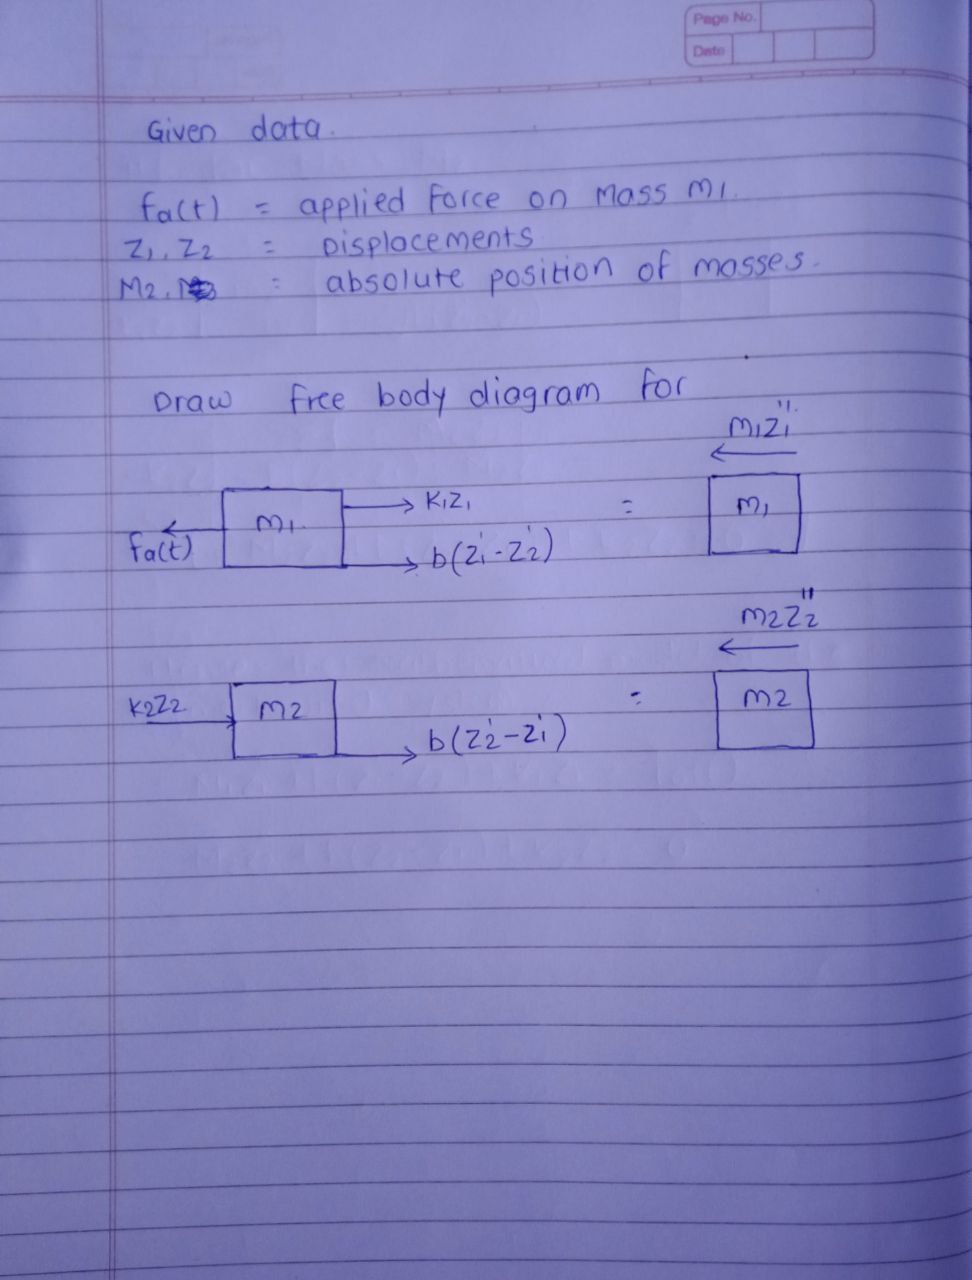 Page No.
Date
Given data.
fa(t) = applied force on mass m1.
Z1, Z2 = Displacements
M2, = absolute position of masses.
Draw free body diagram for
m1z̈1
m1 K1Z1 = m1
fa(t) b(ż1-ż2)
m2z̈2
K2Z2 m2 = m2
b(ż2-ż1)